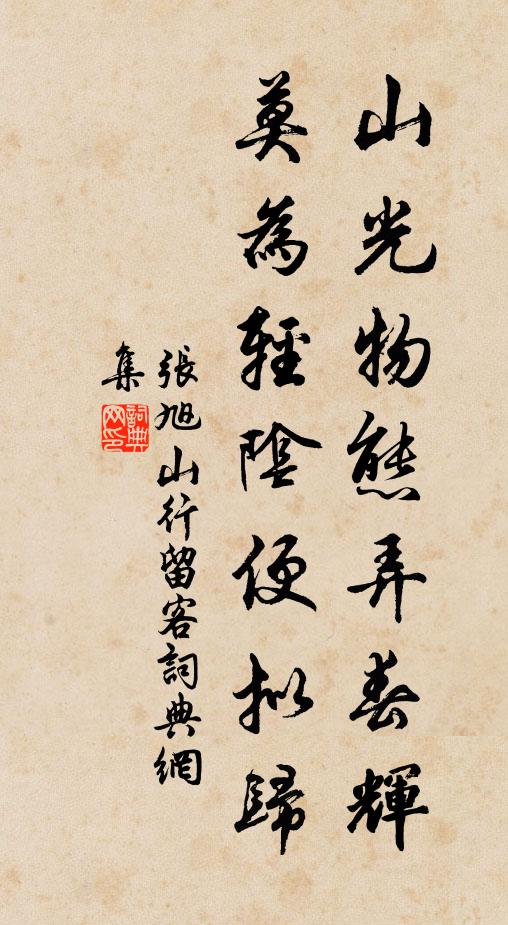 山光物態弄春輝
莫為輕陰便擬歸
張旭山行留客詞典網
集
詞典
网印